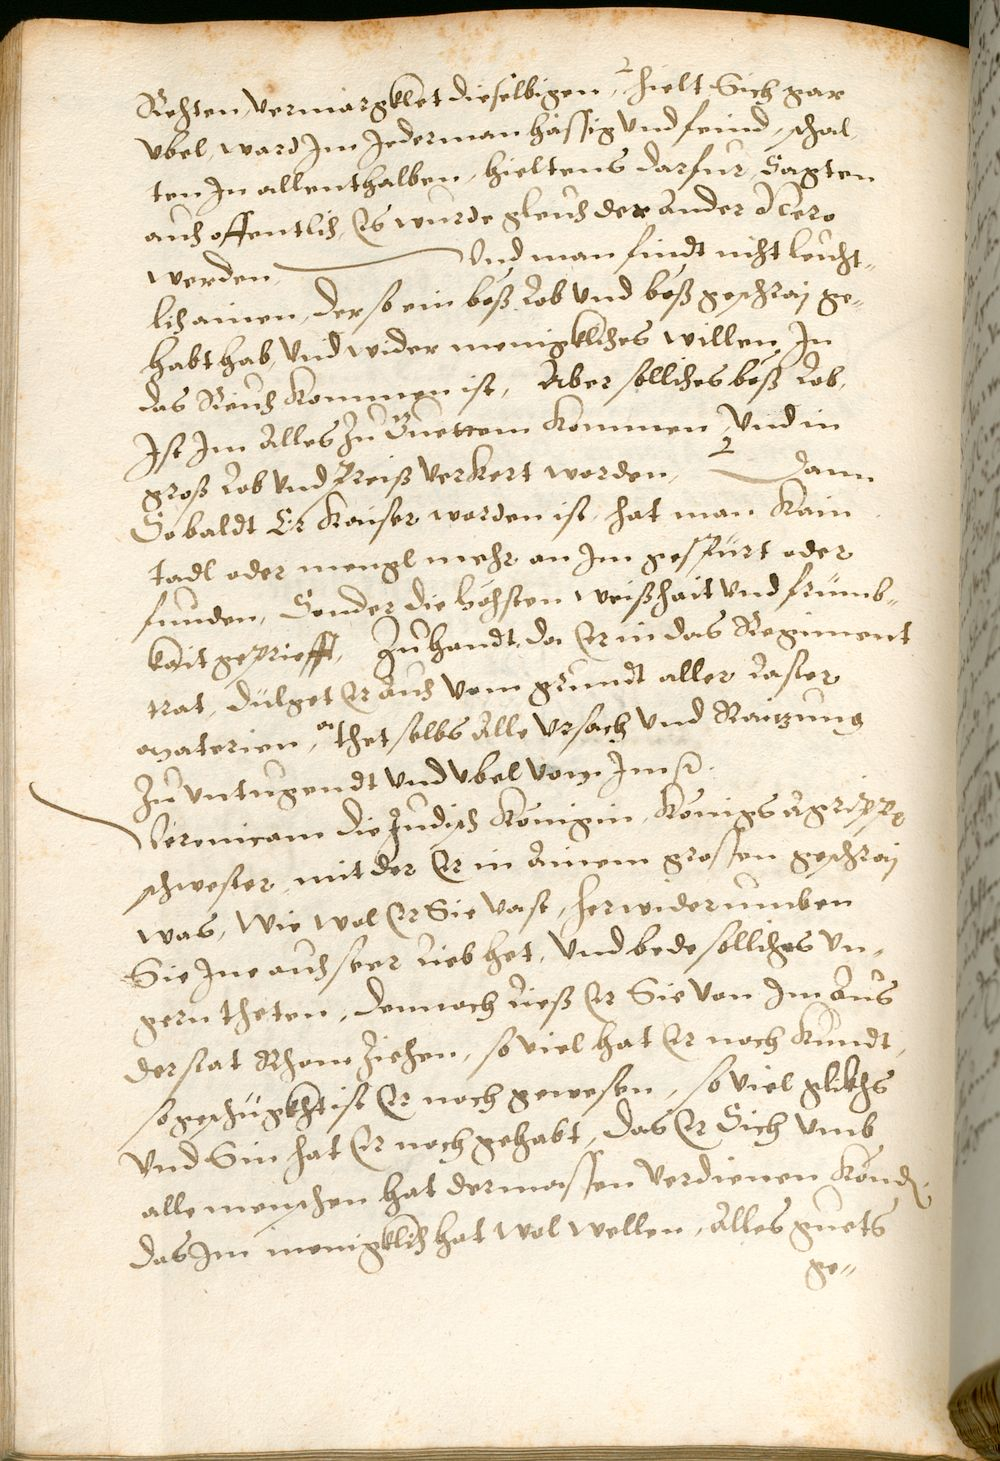 Rehten, vermargklet dieselbigen, hielt Sich gar
vbel, ward Im Jederman hässig vnd feind, schal
ten In allenthalben, hieltens darfur, Sagten
auch offentlich, Es wurde gleich der ander Nero
werden, Vnd man findt nicht leicht-
lich ainen, der so ein böß Lob vnd böß geschraj ge-
habt hab, vnd wider menigkliches willen In
das Reich kommen ist, Aber solliches böß Lob,
Ist Im Alles Zu Guettem kommen, Vnd in
groß Lob vnd Preiß verkert worden, Dann
So baldt Er Kaiser worden ist, hat man kain
tadl oder mengl mehr an Im gespürt oder
funden, Sonder die höchsten weißhait vnd frümb-
kait geprieft, Zuhandt, da Er in das Regiment
trat, dülget Er auch vom grundt aller Laster
materien, thet selbs Alle vrsach vnd Raitzung
Zu vntugendt vnd vbel von Im
Veronicam die Judisch Königin, Königs Agrippe
schwester, mit der Er in Ainem grossen geschraj
was, Wie wol Er Sie vast, herwiderumben
Sie Ine auch seer Lieb het, Vnd bede solliches vn-
gern theten, dennoch Ließ Er Sie von Im Aus
der stat Rhom ziehen, so viel hat Er noch kundt,
so geschigkht ist Er noch gewesen, so viel glikhs
vnd Sin hat Er noch gehabt, das Er Sich vmb
alle menschen hat dermassen verdienen könd.
das Im menigklich hat wol wellen, Alles guets
ge-